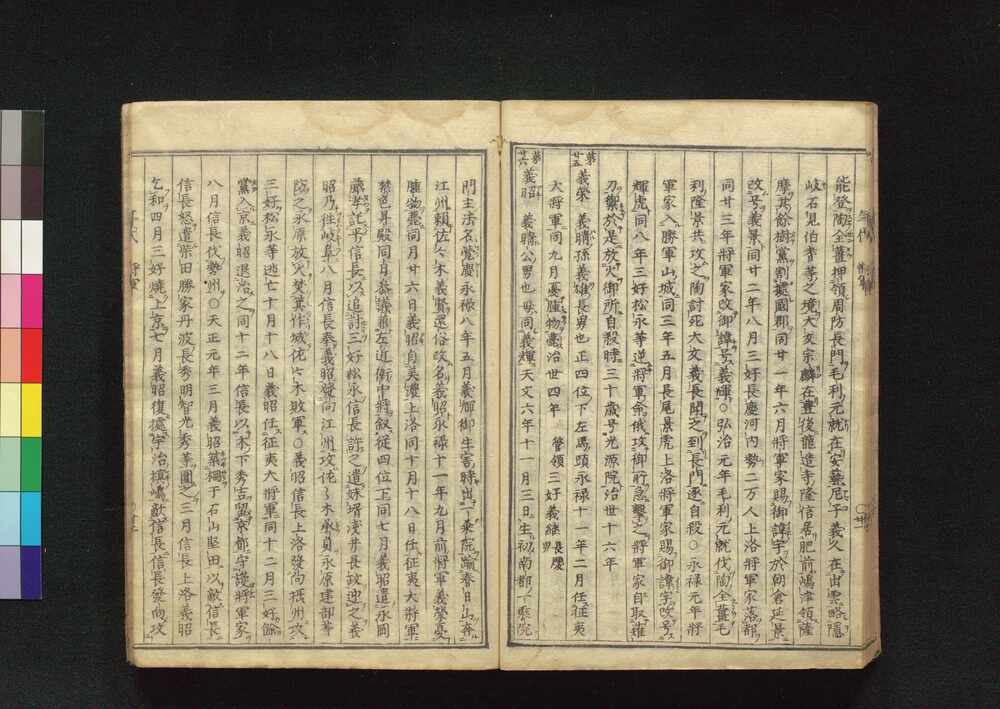 能登陶全薑押領周防長門毛利元就在安藝尼子義久在出雲略隱
岐石見伯耆等之境大友宗麟在豊後龍造寺隆信居肥前嶋津領薩
摩其餘樹黨割據國郡同廿一年六月將軍家賜御諱字於朝倉延景
改号義景同廿二年八月三好長慶河内勢二万人上洛將軍家落都
同廿三年將軍家改御諱号義輝○弘治元年毛利元就伐陶全薑毛
利隆景共攻之陶討死大友義長聞之到長門逐自殺○永禄元年將
軍家入勝軍山城同三年五月長尾景虎上洛將軍家賜御諱字改号
輝虎同八年三好松永等逆將軍命俄攻御所急擊之將軍家自取雄
刀禦於是放火御所自殺時三十歳号光源院治世十六年
第廿五 義榮 義晴孫義雄長男也正四位下左馬頭永禄十一年二月任征夷
大將軍同九月憂腫物薨治世四年 管領三好義継長慶
第廿六 義昭 義晴公男也母同義輝天文六年十一月三日生初南都一乗院
門主法名覺慶永禄八年五月義輝御生害時出一乗院踰春日山奔
江州頼佐々木義賢還俗改名義昭永禄十一年九月前將軍義榮憂
腫物薨同月廿六日義昭自美濃上洛同十月十八日任征夷大將軍
禁色昇殿同身參議兼左近衛中將叙従四位下同七月義昭遣永岡
藤孝託于信長以追討三好松永信長許之遣妹壻淺井長政迎之義
昭乃往岐阜八月信長奉義昭發向江州攻佐々木承貞永原建部等
院之永原放火焚箕作城佐々木敗軍○義昭信長上洛發向摂州攻
三好松永等逃亡十月十八日義昭任征夷大將軍同十二月三好餘
黨入京義昭退治之同十二年信長以木下秀吉留京都守護將軍家
八月信長伐勢州○天正元年三月義昭築柵于石山堅田以敵信長
信長怒遣柴田勝家丹波長秀明智光秀等圍之三月信長上洛義昭
乞和四月三好燒上京七月義昭復據宇治槇嶋敵信長信長發向攻